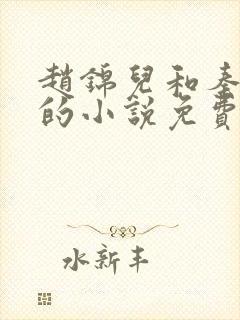 趙錦兒和秦
的小説免費
水新丰